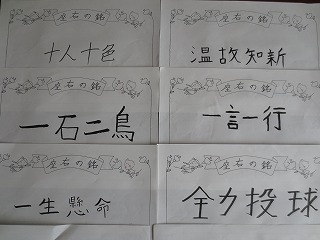 座右の銘
十人十色
座右の銘
温故知新
座右の銘
一石二鳥
座右の銘
一言一行
座右の銘
一生懸命
座右の銘
全力投球